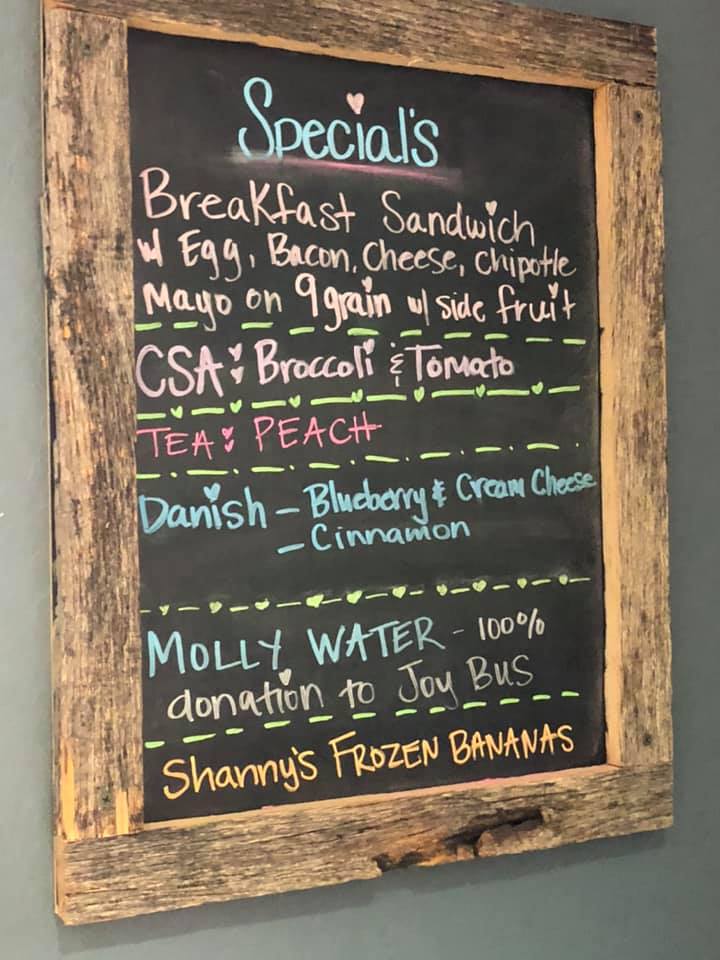 Special's
Breakfast Sandwich
w/ Egg, Bacon, Cheese, Chipotle
Mayo on 9 grain w/ side fruit
CSA: Broccoli & Tomato
TEA: PEACH
Danish - Blueberry & Cream Cheese
- Cinnamon
MOLLY WATER - 100%
donation to Joy Bus
Shanny's FROZEN BANANAS